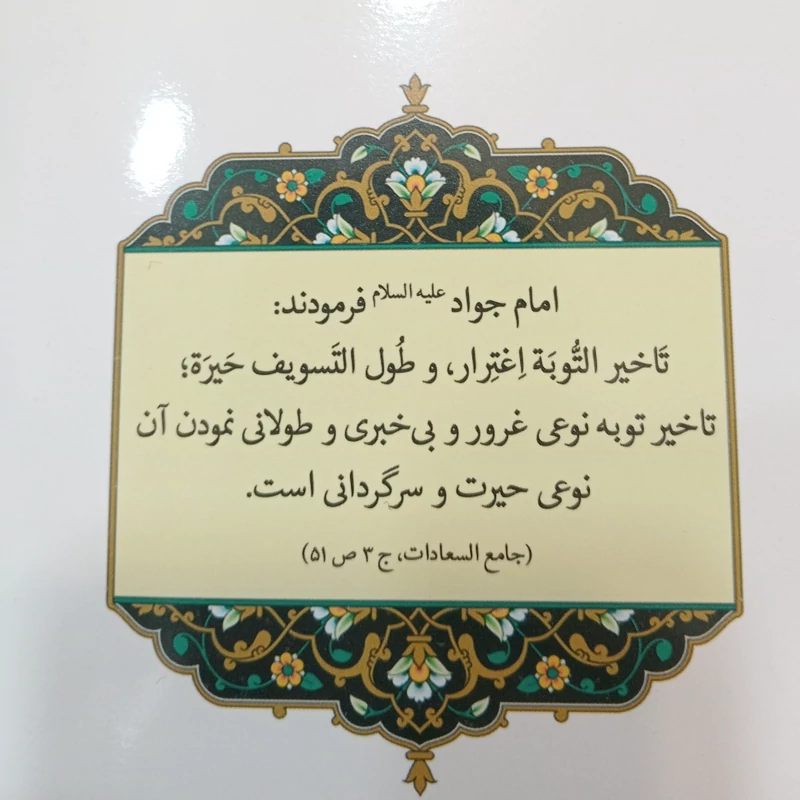 امام جواد علیه السلام فرمودند:
تَاخیر التُّوبَة اِغتِرار، و طُول التَسویف حَیرَة؛
تاخیر توبه نوعی غرور و بی‌خبری و طولانی نمودن آن
نوعی حیرت و سرگردانی است.
(جامع السعادات، ج ۳ ص ۵۱)